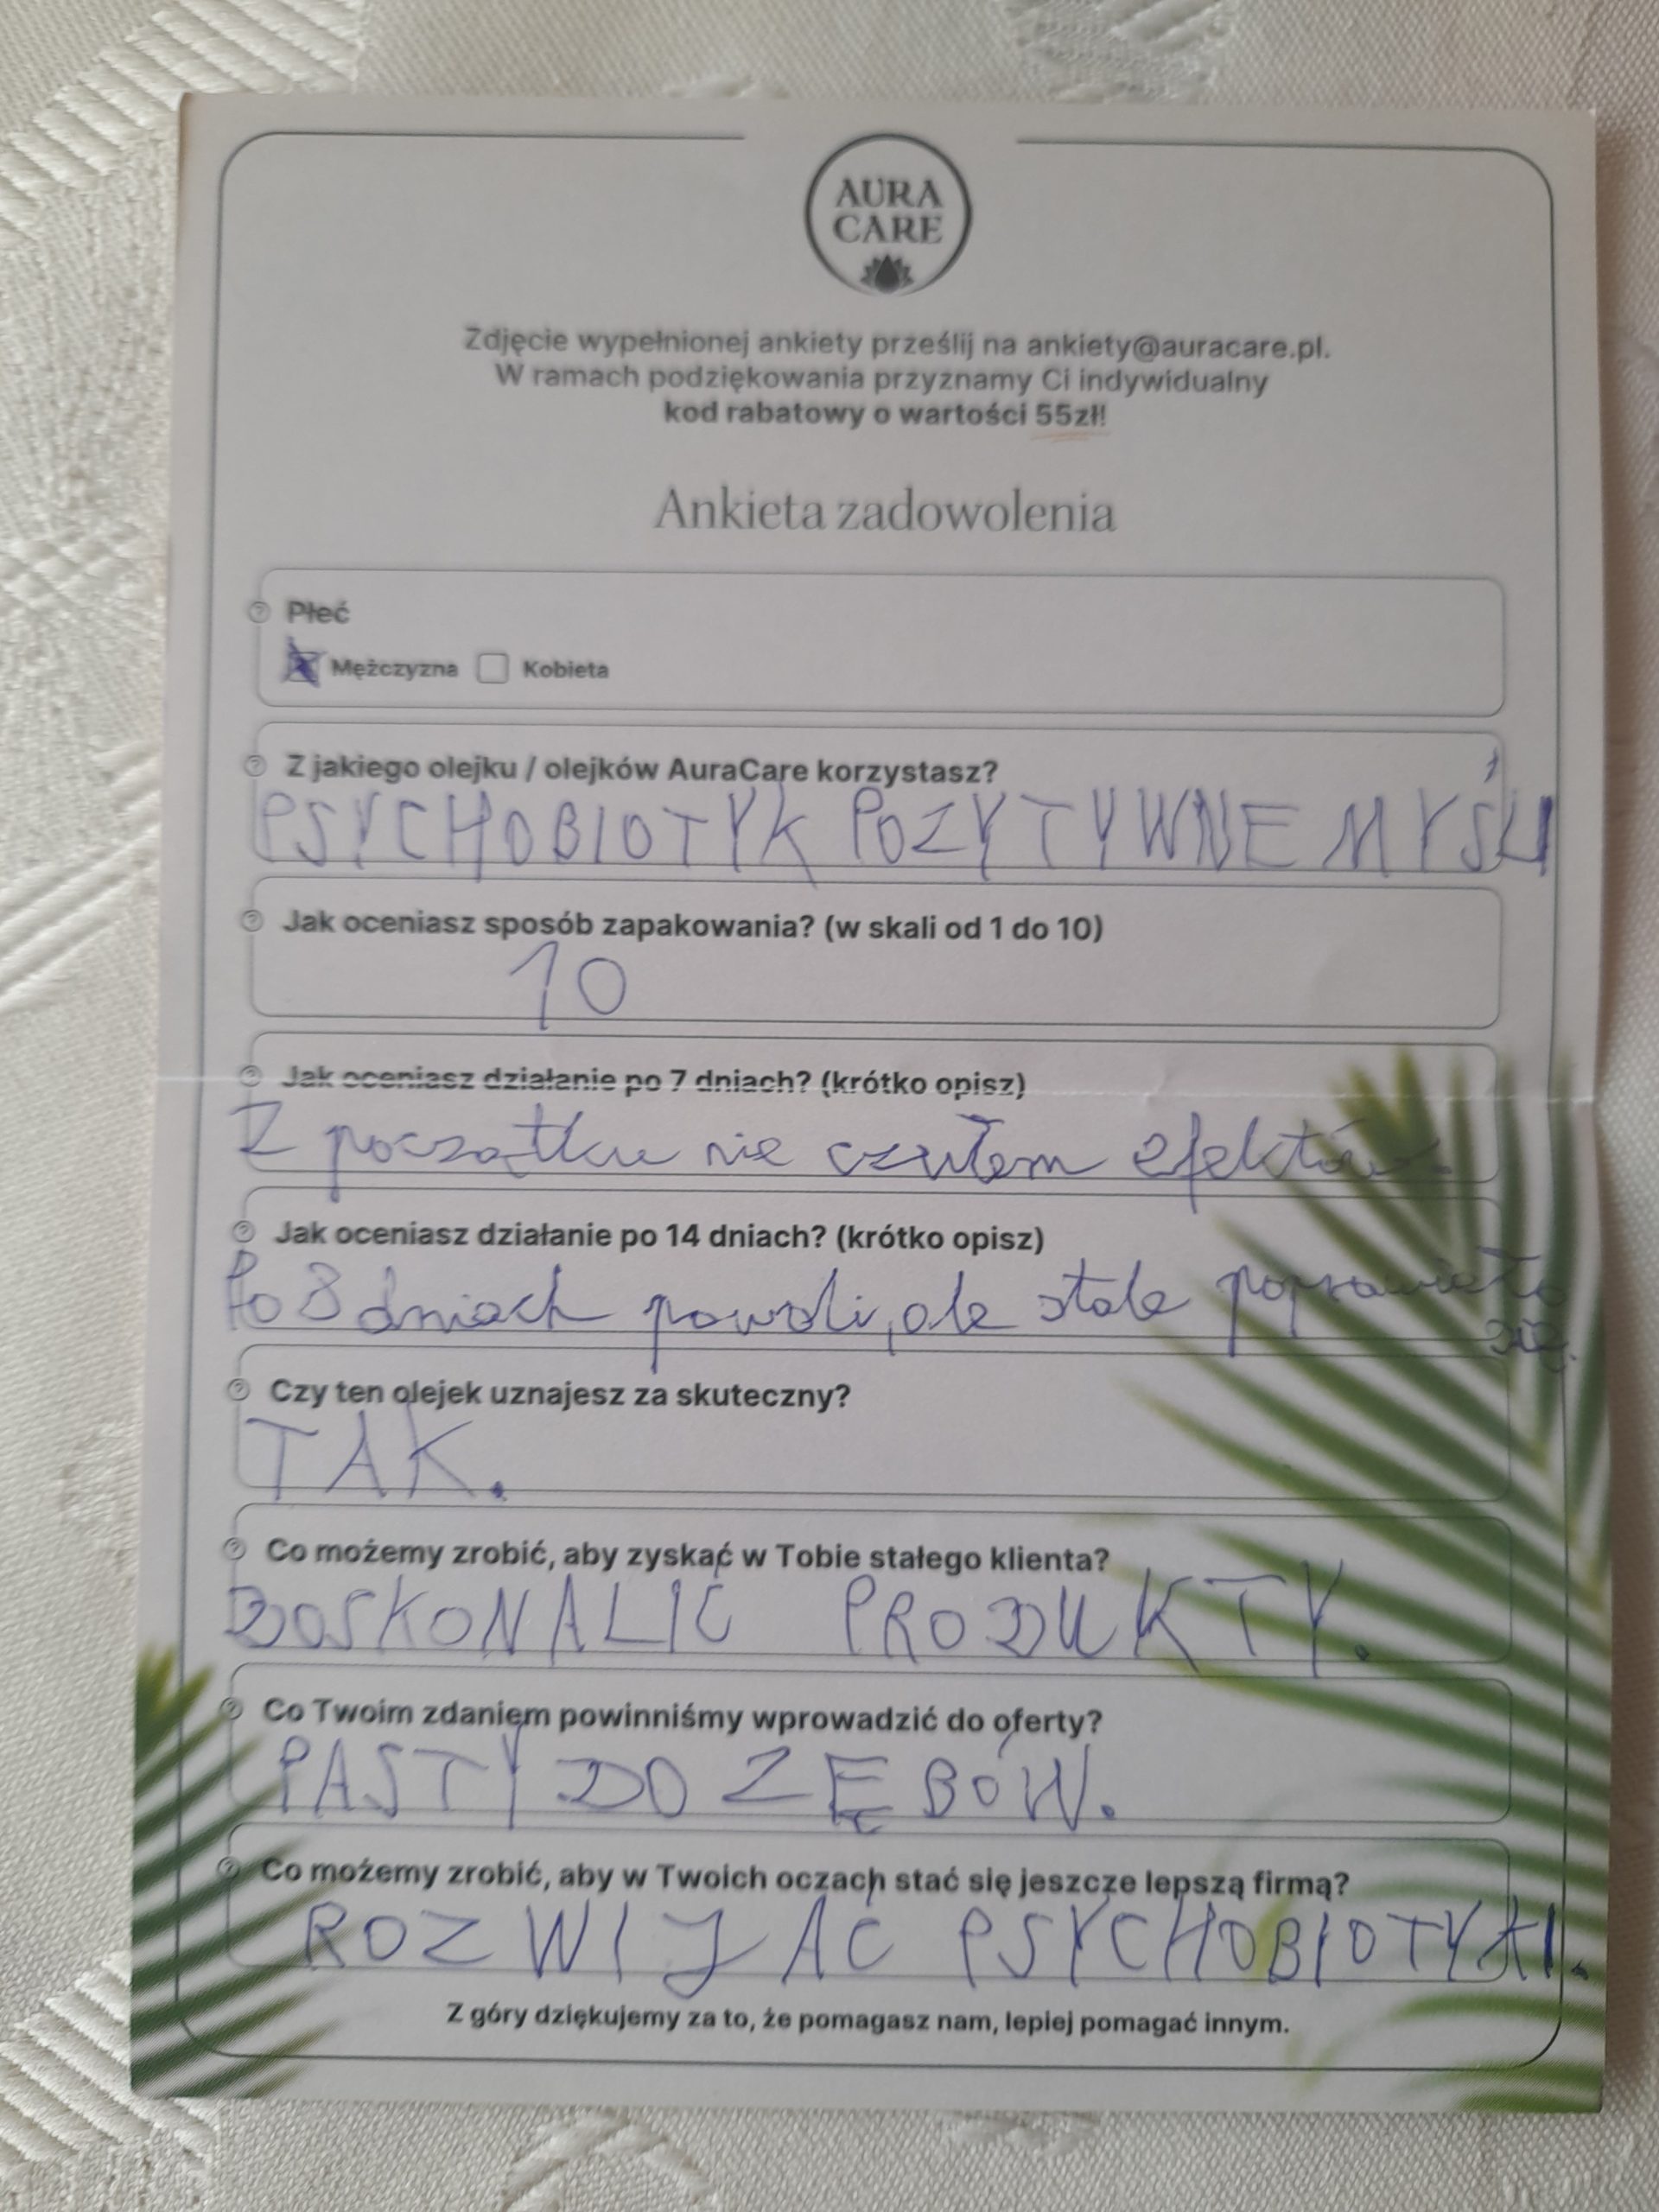 AURA
CARE
Zdjęcie wypełnionej ankiety prześlij na ankiety@auracare.pl.
W ramach podziękowania przyznamy Ci indywidualny
kod rabatowy o wartości 55zł!
Ankieta zadowolenia
Płeć
Mężczyzna Kobieta
Z jakiego olejku / olejków AuraCare korzystasz?
PSYCHOBIOTYK POZYTYWNE MYŚLI
Jak oceniasz sposób zapakowania? (w skali od 1 do 10)
10
Jak oceniasz działanie po 7 dniach? (krótko opisz)
Z początku nie czułem efektów.
Jak oceniasz działanie po 14 dniach? (krótko opisz)
Po 8 dniach powoli, ale stale poprawiało
się.
Czy ten olejek uznajesz za skuteczny?
TAK.
Co możemy zrobić, aby zyskać w Tobie stałego klienta?
DOSKONALIĆ PRODUKTY.
Co Twoim zdaniem powinniśmy wprowadzić do oferty?
PASTY DO ZĘBÓW.
Co możemy zrobić, aby w Twoich oczach stać się jeszcze lepszą firmą?
ROZWIJAĆ PSYCHOBIOTYKI.
Z góry dziękujemy za to, że pomagasz nam, lepiej pomagać innym.